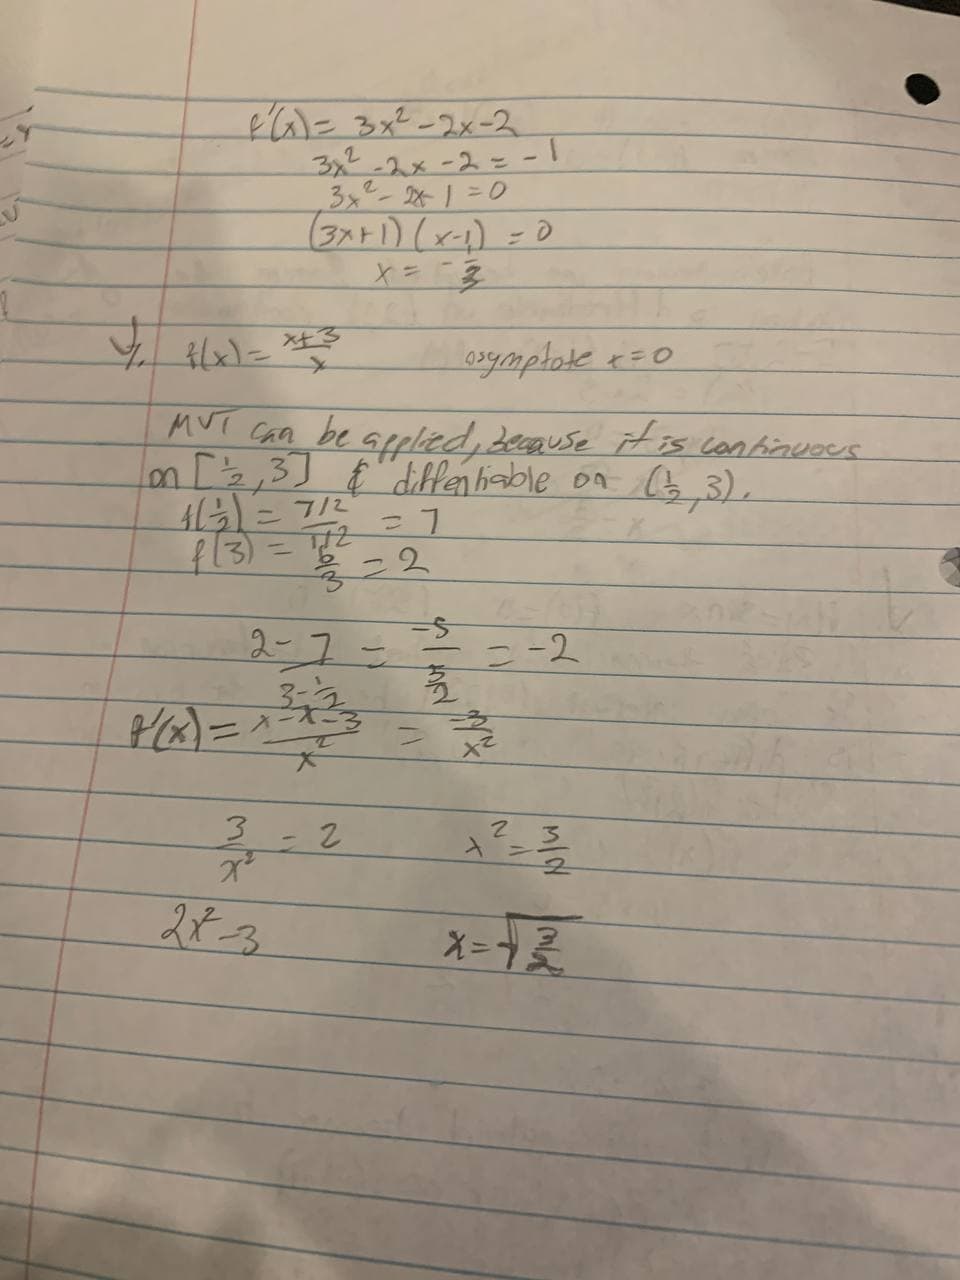 f'(x) = 3x² - 2x - 2
3x² - 2x - 2 = -1
3x² - 2x - 1 = 0
(3x+1)(x-1) = 0
x = -1/3
f(x) = (x+3)/x    asymptote x = 0
MVT can be applied, because it is continuous
on [1/2, 3] & diffentiable on (1/2, 3).
f(1/2) = (7/2)/(1/2) = 7
f(3) = 6/3 = 2
(2-7)/(3-1/2) = -5/(5/2) = -2
f'(x) = (x-x-3)/x² = -3/x²
3/x² = 2    x² = 3/2
2x² - 3    x = √(3/2)